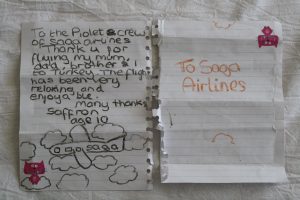 To the Pilots crew
of Saga airlines
Thank u for
flying my mum,
dad, brother & I
to Turkey. The flight
has been very
relaxing and
enjoyable.
many thanks
Saffron
age 10
saga
To Saga
Airlines